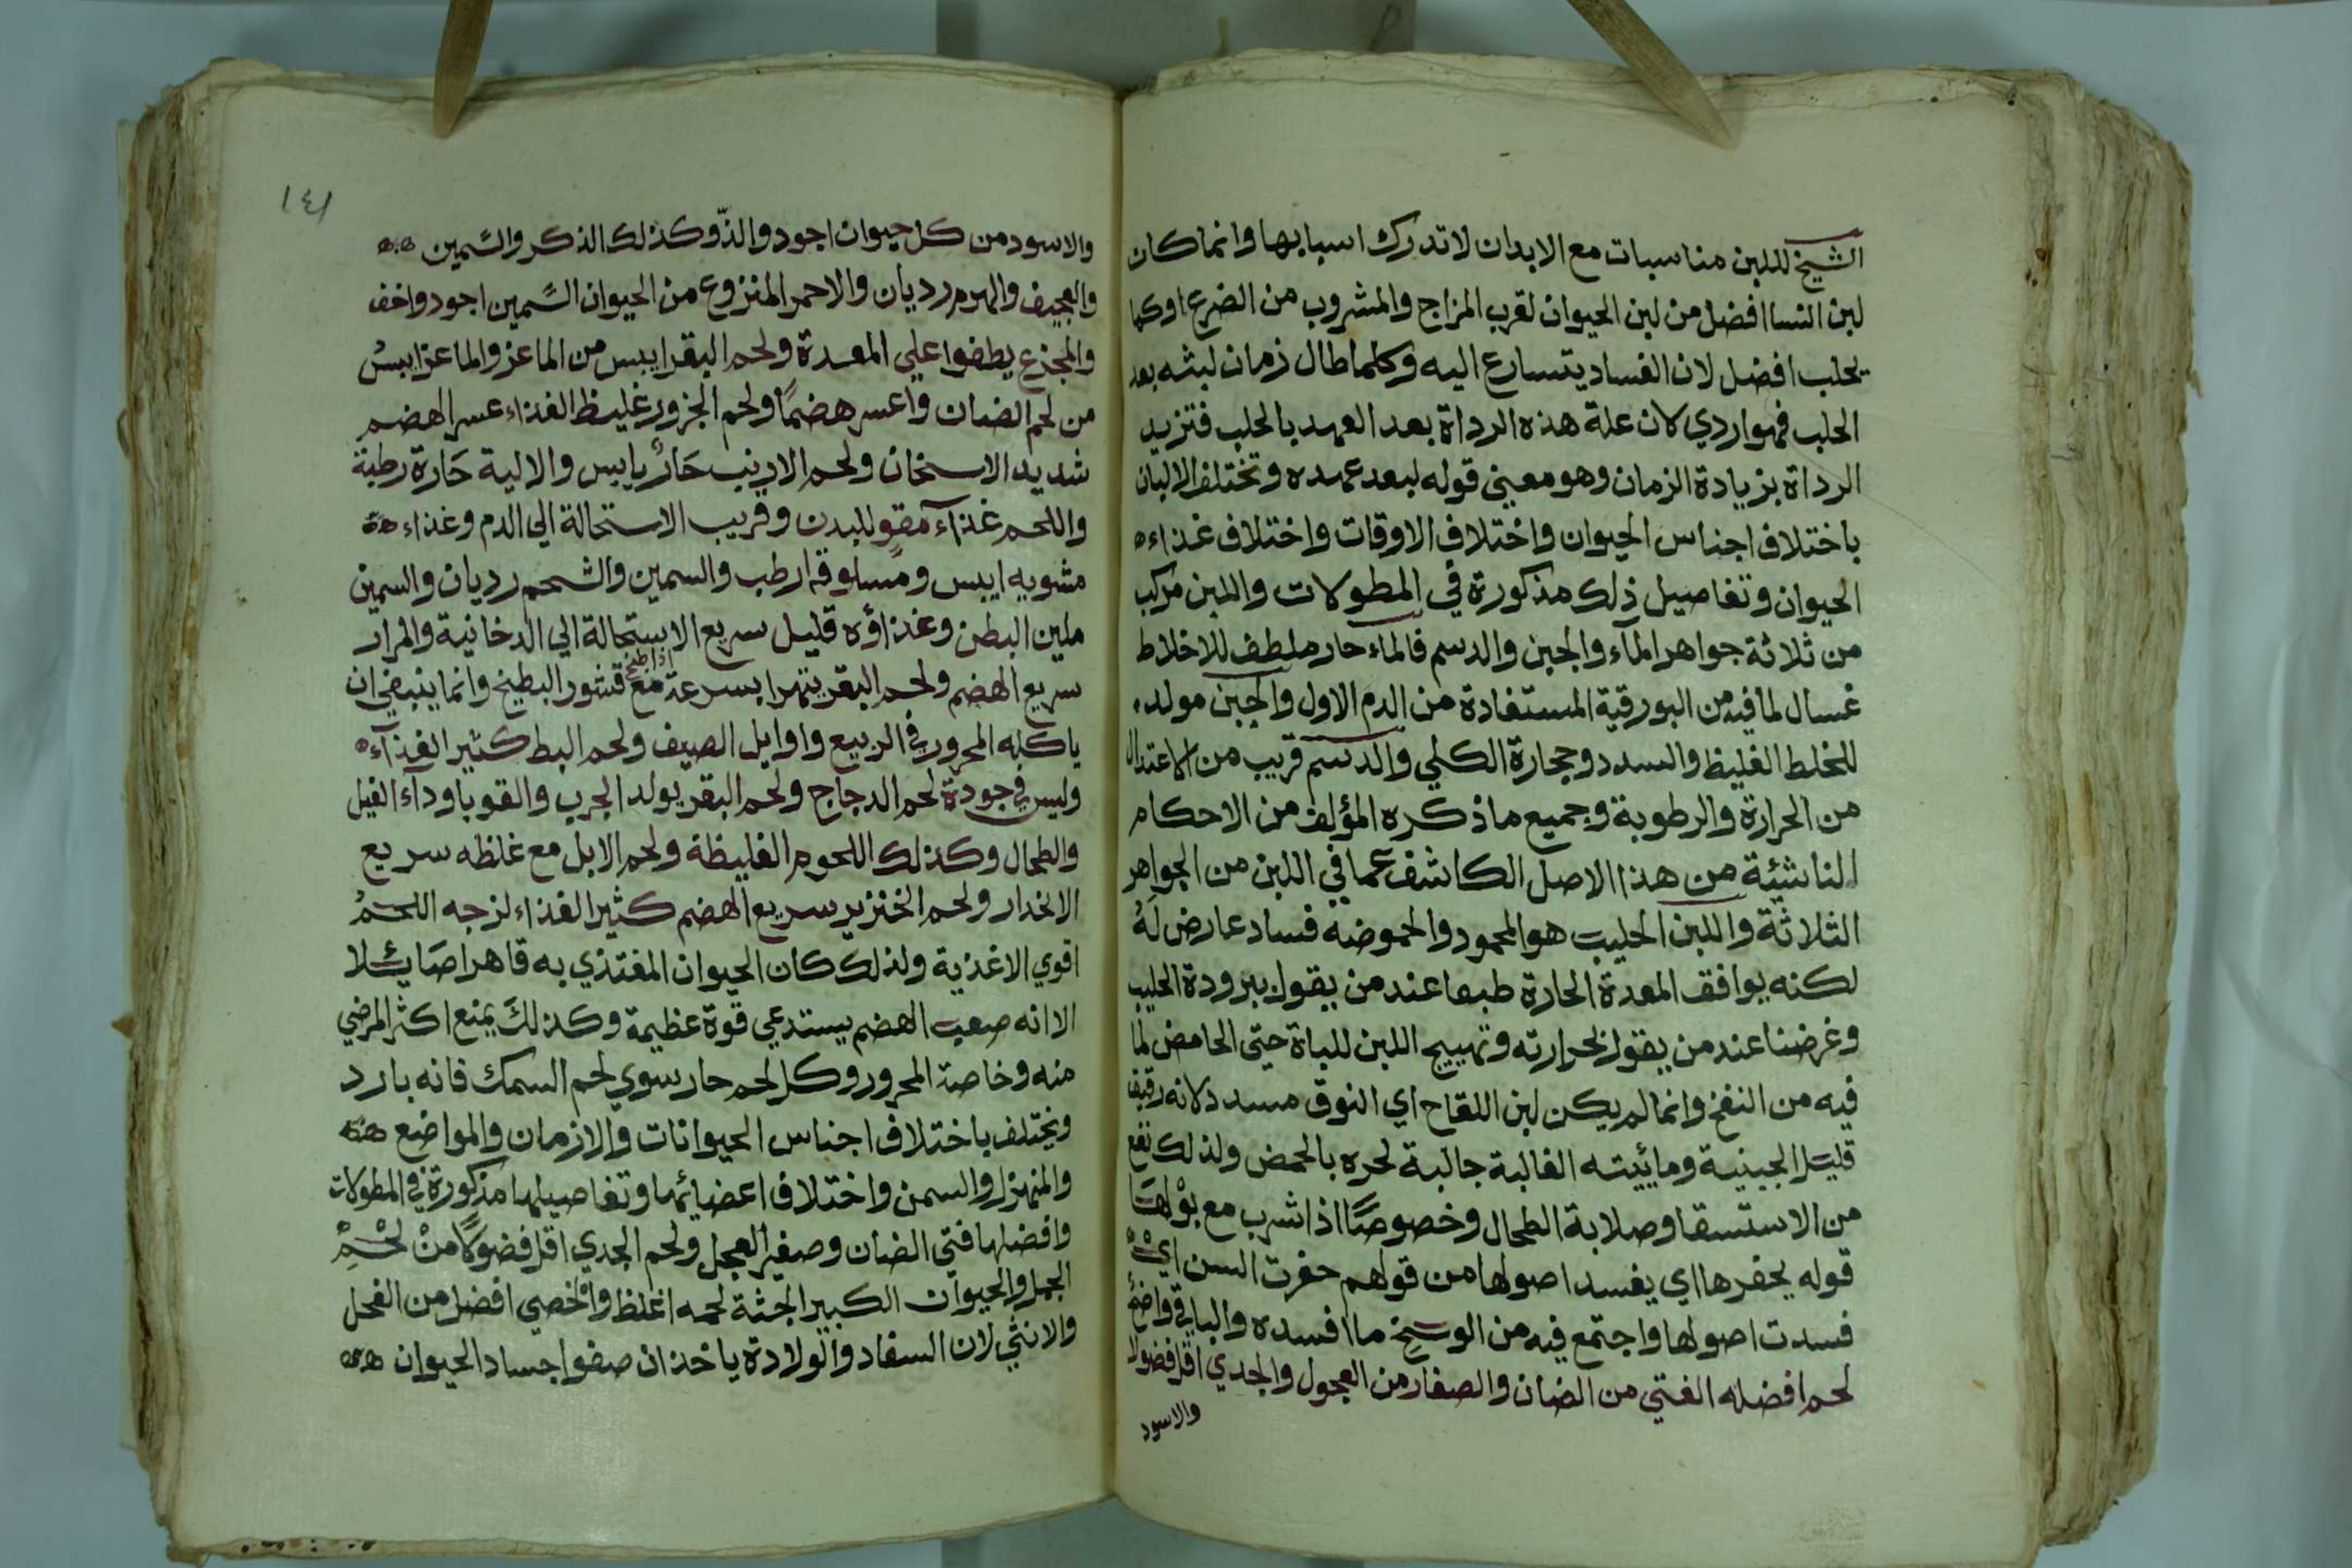 الشيخ لللبن مناسبات مع الابدان لا تدرك اسبابها وانما كان
لبن النسا افضل من لبن الحيوان لقرب المزاج والمشروب من الضرع اوكما
يحلب افضل لان الفساد يتسارع اليه وكلما طال زمان لبثه بعد
الحلب فهو اردي لان علة هذه الرداة بعد العهد بالحلب فتزيد
الرداة بزيادة الزمان وهو معني قوله لبعد عهده وتختلف الالبان
باختلاف اجناس الحيوان واختلاف الاوقات واختلاف غذاء
الحيوان وتفاصيل ذلك مذكورة في المطولات واللبن مركب
من ثلاثة جواهر المآء والجبن والدسم فالماء حار ملطف للاخلاط
غسال لما فيه من البورقية المستفادة من الدم الاول والجبن مولد
للخلط الغليظ والسدد وحجارة الكلي والدسم قريب من الاعتدال
من الحرارة والرطوبة وجميع ما ذكره المؤلف من الاحكام
الناشئة من هذا الاصل الكاشف عما في اللبن من الجواهر
الثلاثة واللبن الحليب هو المحمود والحموضه فساد عارض له
لكنه يوافق المعدة الحارة طبعا عند من يقول ببرودة الحليب
وغرضنا عند من يقول بحرارته وتهييج اللبن للباة حتى الحامض لما
فيه من النفخ وانما لم يكن لبن اللقاح اي النوق مسدد لانه رقيق
قليل الجبنية ومائيته الغالبة جالبة لحره بالحمض ولذلك نفع
من الاستسقا وصلابة الطحال وخصوصًا اذا شرب مع بولها
قوله يحفرها اي يفسد اصولها من قولهم حفرت السن اي
فسدت اصولها واجتمع فيه من الوسخ ما افسده والباقي واضح
لحم افضله الفتي من الضان والصغار من العجول والجدي اقل فضولا
والاسود
١٤١
والاسود من كل حيوان اجود والذّ وكذلك الذكر والسّمين
والعجيف والهرم رديان والاحمر المنزوع من الحيوان السّمين اجود واخف
والمجذع يطفوا علي المعدة ولحم البقر ايبس من الماعز والماعز ايبسْ
من لحم الضان واعسر هضمًا ولحم الجزور غليظ الغذاء عسر الهضم
شديد الاسخان ولحم الارنب حَارٌ يابس والالية حَارة رطبة
واللحم غذآء مقوٍ للبدن وقريب الاستحالة الي الدم وغذاء
مشويه ايبس ومسلوقه ارطب والسمين والشحم رديان والسمين
ملين البطن وغذاؤه قليل سريع الاستحالة الي الدخانية والمرار
سريع الهضم ولحم البقر يتهرا بسرعة اذا طبخ مع قشور البطيخ وانما ينبغي ان
ياكله المحرور في الربيع واوايل الصيف ولحم البط كثير الغذآء
وليس في جودة لحم الدجاج ولحم البقر يولد الجرب والقوبا ودآء الفيل
والطحال وكذلك اللحوم الغليظة ولحم الابل مع غلظه سريع
الانحدار ولحم الخنزير سريع الهضم كثير الغذاء لزجه اللحمُ
اقوي الاغذية ولذلك كان الحيوان المغتذي به قاهرا صَائلا
الا انه صعب الهضم يستدعي قوة عظيمة وكذلك يمنع اكثر المرضي
منه وخاصة المحرور وكل لحم حار سوي لحم السمك فانه بارد
ويختلف باختلاف اجناس الحيوانات والازمان والمواضع
والمنهزل والسمن واختلاف اعضائها وتفاصيلها مذكورة في المطولات
وافضلها فتي الضان وصغير العجل ولحم الجدي اقل فضولًا منْ لحْمِ
الجمل والحيوان الكبير الجثة لحمه اغلظ والخصي افضل من الفحل
والانثي لان السفاد والولادة ياخذان صفوا جساد الحيوان